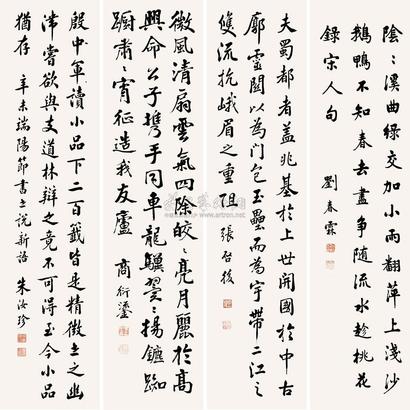 陰〻溪曲綠交加小雨翻萍上淺沙
鵝鴨不知春去盡爭随流水趁桃花
錄宋人句 劉春霖
夫蜀都者盖兆基於上世開國於中古
廓靈關以為門包玉壘而為宇帶二江之
雙流抗峨眉之重阻 張啓後
微風清扇雲氣四除皎〻亮月麗於高
興命公子携手同車龍驥翼〻揚鑣踟
蹰肅〻宵征造我友廬 商衍鎏
殷中軍讀小品下二百籤皆是精微世之幽
滯嘗欲與支道林辯之竟不可得至今小品
猶存 辛未端陽節書世說新語 朱汝珍